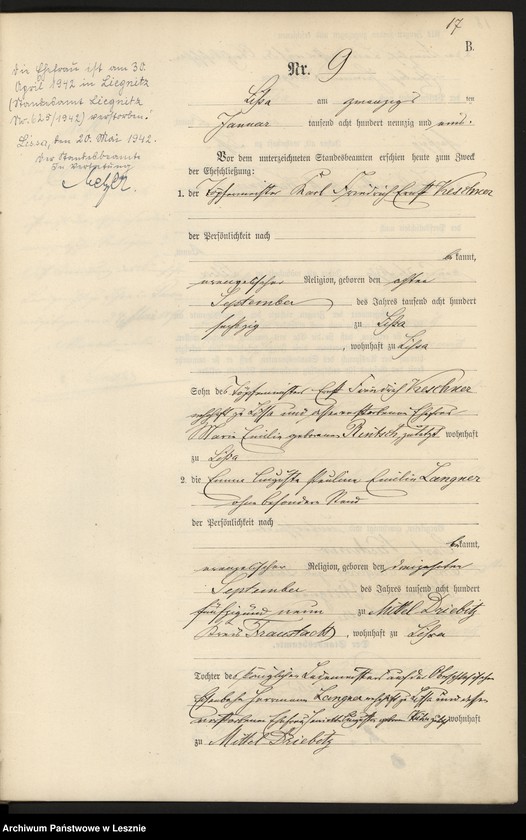 17
B.
Die Ehefrau ist am 30.
April 1942 in Liegnitz
(Standesamt Liegnitz
Nr. 625/1942) verstorben.
Lissa, den 20. Mai 1942.
Der Standesbeamte
In Vertretung
Nr. 9
Lissa am zwanzigsten
Januar tausend acht hundert neunzig und eins.
Vor dem unterzeichneten Standesbeamten erschien heute zum Zweck
der Eheschließung:
1. der Töpfermeister Karl Friedrich Ernst Kreschner
der Persönlichkeit nach
bekannt,
evangelischer Religion, geboren den
September des Jahres tausend acht hundert
sechzig zu Lissa
, wohnhaft zu Lissa
Sohn des Töpfermeisters Ernst Friedrich Kreschner
wohnhaft zu Lissa und Ehefrau
Marie Emilie geborene Rentsch, zuletzt wohnhaft
zu Lissa
2. die Emma Auguste Pauline Emilie Langner
ohne besonderen Stand
der Persönlichkeit nach
bekannt,
evangelischer Religion, geboren den dreizehnten
September des Jahres tausend acht hundert
fünfzig und neun zu Mittel Driebitz
Kreis Fraustadt, wohnhaft zu Lissa
Tochter des Königlichen auf der Oberschlesischen
Eisenbahn Herrmann Langner wohnhaft zu Lissa und dessen
verstorbenen Ehefrau Auguste geborene wohnhaft
zu Mittel Driebitz
Archiwum Państwowe w Lesznie